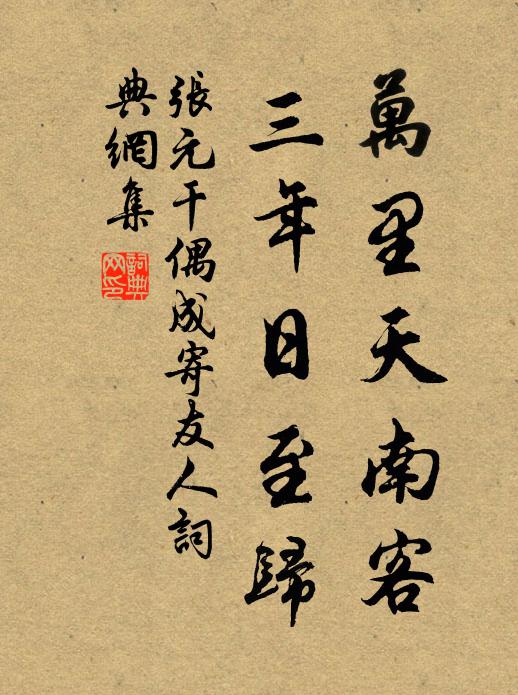 萬里天南客
三年日至歸
張元干偶成寄友人詞
典網集
詞典
网印